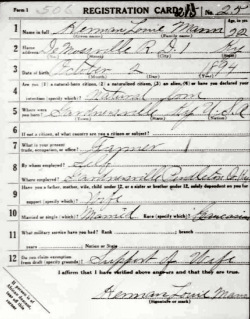 Form 1 REGISTRATION CARD No. 25
1 Name in full Herman Louie Mann Age, in yrs. 22
2 Home address DeMossville R.D. 1 Ky
3 Date of birth October 2 1894
4 Are you (1) a natural-born citizen, (2) a naturalized citizen, (3) an alien, (4) or have you declared your intention (specify which)? Natural born
5 Where were you born? Gardnersville Ky U.S.A
6 If not a citizen, of what country are you a citizen or subject?
7 What is your present trade, occupation, or office? Farmer
8 By whom employed? Self
Where employed? Gardnersville Pendleton Co. Ky
9 Have you a father, mother, wife, child under 12, or a sister or brother under 12, solely dependent on you for support (specify which)? Wife
10 Married or single (which)? Married Race (specify which)? Caucasian
11 What military service have you had? Rank
years Nation or State
12 Do you claim exemption from draft (specify grounds)? Support of Wife
I affirm that I have verified above answers and that they are true.
Herman Louie Mann